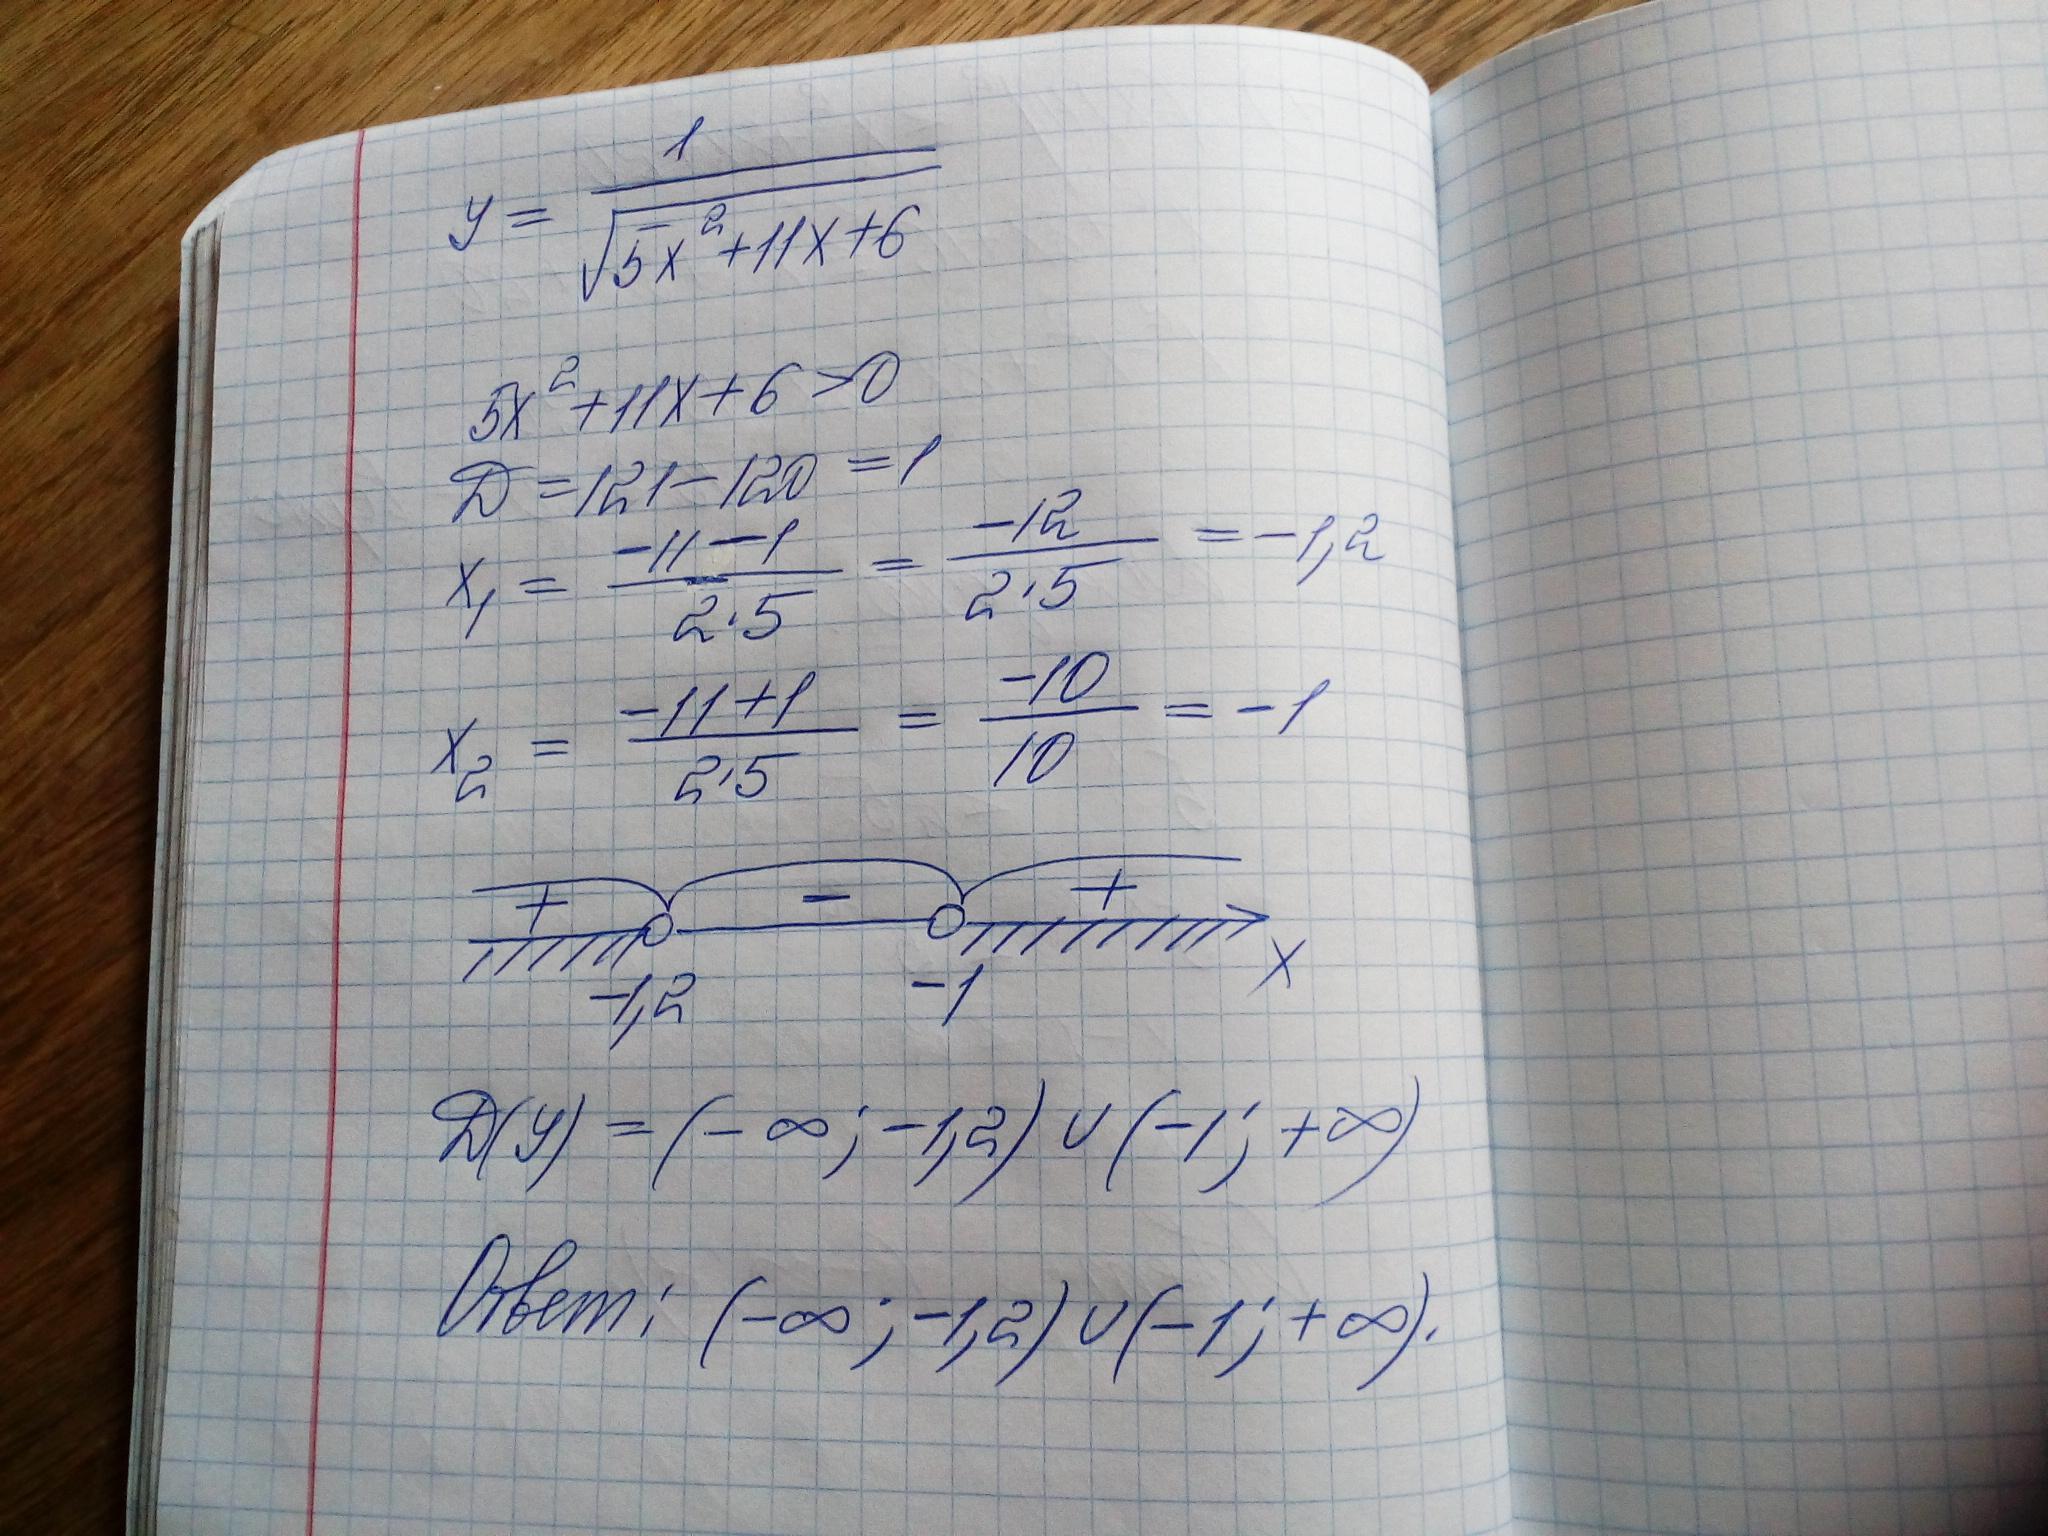 y = 1/√(5x² + 11x + 6)
5x² + 11x + 6 > 0
D = 121 - 120 = 1
x₁ = (-11 - 1)/(2·5) = -12/(2·5) = -1,2
x₂ = (-11 + 1)/(2·5) = -10/10 = -1
+ - +
-1,2 -1 x
D(y) = (-∞; -1,2) ∪ (-1; +∞)
Ответ: (-∞; -1,2) ∪ (-1; +∞).